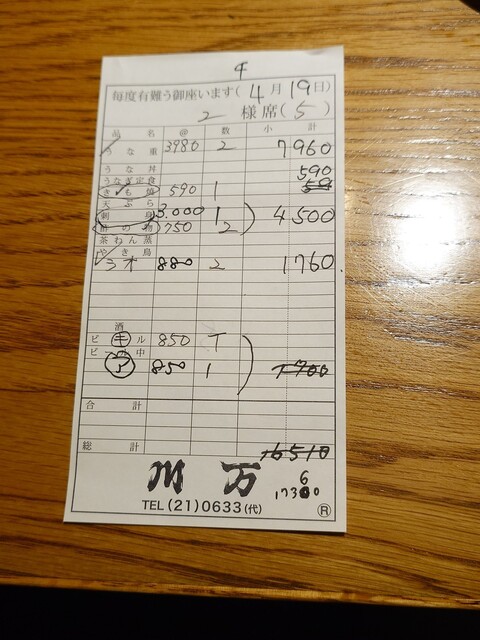 4
毎度有難う御座います(4月19日)
2 様 席(5)
品 名 @ 数 小 計
うな重 3980 2 7960
うな丼 590
うなぎ定食
きも焼 590 1
天ぷら
刺身 3.000 1 4500
酢の物 750 2
茶わん蒸
やき鳥
880 2 1760
酒
ビール キ 850
ビール中
ア 850 1 1700
合 計
総 計 16510
川 万 17360
TEL(21)0633(代) R